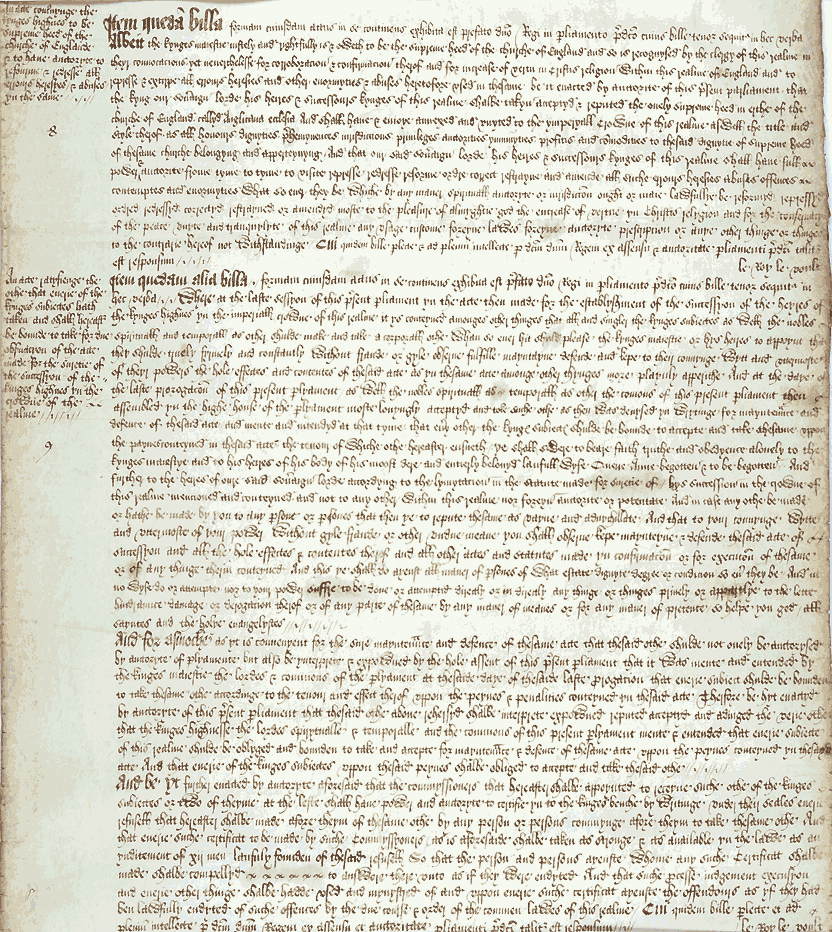 An acte concernyng the
kynges highnes to be
supreme heed of the
churche of Englande
& to have auctorite to
refourme & redresse all
errours heresyes & abuses
yn the same
8
Item quedam billa formam cuiusdam actus in se continens exhibita est prefato dno Regi in pliamento pdco cuius bille tenor sequitur in hec verba
Albeit the kynges maiestie iustely and rightfully is & oweth to be the supreme heed of the churche of England and so is recognysed by the clergy of this realme in
theyr convocations yet neverthelesse for corroboracion & confirmacion therof and for increase of vertu in cristis religion within this realme of England and to
represse & extirpe all errours heresies and other enormytees & abuses heretofore used in thesame be it enacted by auctorite of this psent parliament that
the kyng our soveraign lorde his heires & successours kynges of this realme shalbe taken accepted & reputed the onely supreme heed in erthe of the
churche of England called Anglicana ecclesia And shall have & enioye annexed and unyted to the ymperyall crowne of this realme aswell the title and
style therof as all honours dignytees phemynences iurisdiccions privileges auctorities ymmunytes profitis and comodities to thesaid dignyte of supreme heed
of thesame churche belongyng and apperteynyng. And that our said soveraign lorde his heires & successours kynges of this realme shall have full
power & auctorite frome tyme to tyme to visite represse redresse reforme ordre correct restrayne and amende all suche errours heresies abuses offences
contemptes and enormytees what so ever they be whiche by any maner spirituall auctoryte or iurisdiccion ought or maie lawfullie be reformyd repressyd
ordred redressyd correctyd restrayned or amendyd moste to the pleasure of almyghtie god the encrease of vertue yn Christis religion and for the conservacy
of the peace unyte and tranquylyte of this realme any usage custome foreyne lawes foreyne auctoryte prescripcion or anye other thinge or thinges
to the contrarie hereof not withstandinge. Cui quidem bille plecte & ad plenum intellecte p dcm dnm Regem ex assensu & auctoritate pliamenti pdci talit
est responsum
le Roy le voult
An acte ratifienge the
othe that everie of the
kynges subiectes hath
taken and shall hereaft
be bounde to take for due
observacion of the acte
made for the suretie of
the succession of the
kinges highnes yn the
crowne of the
realme
9
Item quedam alia billa formam cuiusdam actus in se continens exhibita est pfato dno Regi in pliamento pdco cuius bille tenor sequitur in
hec verba. Where at the laste session of this psent pliament yn the acte then made for the establyshment of the succession of the heires of
the kynges highnes yn the imperiall crowne of this realme it ys conteined amonges other thinges that all and singler the kynges subiectes as well the nobles
spirituall and temporall as other shulde make and take a corporall othe whan so ever hit shuld please the kynges maiestie or hys heires to appoynt that
they shulde truely fyrmely and constantly without fraude or gyle observe fulfille mayntayne defende and kepe to theyr connynge wytt and uttermoste
of theyr powers the hole effectes and contentes of thesaid acte as yn thesame acte amonge other thynges more playnly apperithe. And at the daye of
the laste prorogacion of this present plyament as well the nobles spirituall as temporall as other the comons of this present pliament then
assembled yn the highe house of the plyament moste lovyngly acceptyd and toke suche othe as then was devysed yn wrytinge for mayntenance and
defence of thesaid acte and mente and intendyd at that tyme that every other the kyngs subiectes shulde be bounde to accepte and take thesame uppon
the paynes conteined in thesaid acte the tenour of whiche othe hereafter ensueth. Ye shall swere to beare faith truthe and obedyence alonely to the
kynges maiestye and to his heires of his body of his moost dere and entierly belovyd laufull wyfe Quene Anne begotten & to be begotten And
further to the heires of oure said soveraign lorde accordyng to the lymytacion in the statute made for suretie of hys succession in the crowne of
this realme mencioned and conteyned and not to any other within this realme nor foreyn auctorite or potentate. And in case any othe be made
or hathe be made by you to any psone or psones that then ye to repute thesame as vayne and adnychillate And that to your connynge wytte
and uttermoste of your power without gyle fraude or other undue meane you shall observe kepe maynteyne & defende thesaid acte of
succession and all the hole effectes & contentes therof and all other actes and statutes made yn confirmacion or for execucion of thesame
or of any thinge therin conteyned. And this ye shall do ayenst all maner of psones of what estate dignyte degree or condicion so ever they be And in
no wyse do or attempte nor to your power suffre to be done or attemptid directly or in directly any thinge or thinges prively or appartly to the lette
hindraunce damage or derogacion therof or of any parte of thesame by any maner of meanes or for any maner of pretence so helpe you god all
sayntes and the holye evangelystes
And for asmoche as yt is convenyent for the sure mayntenance and defence of thesame acte that thesaid othe shulde not onely be auctorysed
by auctorite of plyamente but also be interpreted & expoundyd by the hole assent of this psent pliament that it was mente and entended by
the kinges maiestie the lordes & comons of the plyament at thesaide daye of thesaide laste prorogacion that everie subiect shulde be bounden
to take thesame othe accordinge to the tenour and effect therof uppon the peynes & penalities conteyned yn thesaid acte Therfore be hyt enacted
by auctoryte of this psent pliament that thesaid othe above rehersyd shalbe interprete expoundyd reputed acceptyd and adiuged the verie othe
that the kinges highnesse the lordes spirytuall & temporalle and the comons of this present plyament mente & entended that everie subiecte
of this realme shulde be oblyged and bounden to take and accepte for mayntenance & defence of thesame acte uppon the peynes conteyned yn thesaid
acte And that everie of the kinges subiectes uppon thesaid peynes shalbe obliged to accepte and take thesaid othe
And be yt further enacted by auctoryte aforesaid that the commyssioners that hereafter shalbe appoynted to receyve suche othe of the kinges
subiectes or two of theym at the leste shall have power and auctoryte to certifie yn to the kinges benche by wrytinge under their seales everie
refusell that hereafter shalbe made afore theym of thesame othe by any person or persons commynge afore theym to take thesame othe And
that everie suche certificat to be made by suche commyssioners as is aforesaide shalbe taken as stronge & as available yn the lawe as an
yndictement of xii men laufully founden of thesaid refusell So that the person and persons ayenste whome any suche certificat shalbe
made shalbe compellyd to answere there unto as if they were endyted And that suche pcesse iudgement execusion
and everie other thinge shalbe hadde used and mynystred of and uppon everie suche certificat ayenste the offendours as yf they had
ben lawfully endyted of suche offences by the due course & order of the commen lawes of this realme Cui quidem bille plecte et ad
plenum intellecte p dcm dnm Regem ex assensu et auctoritate pliamenti pdci talit est responsum
le Roy le voult